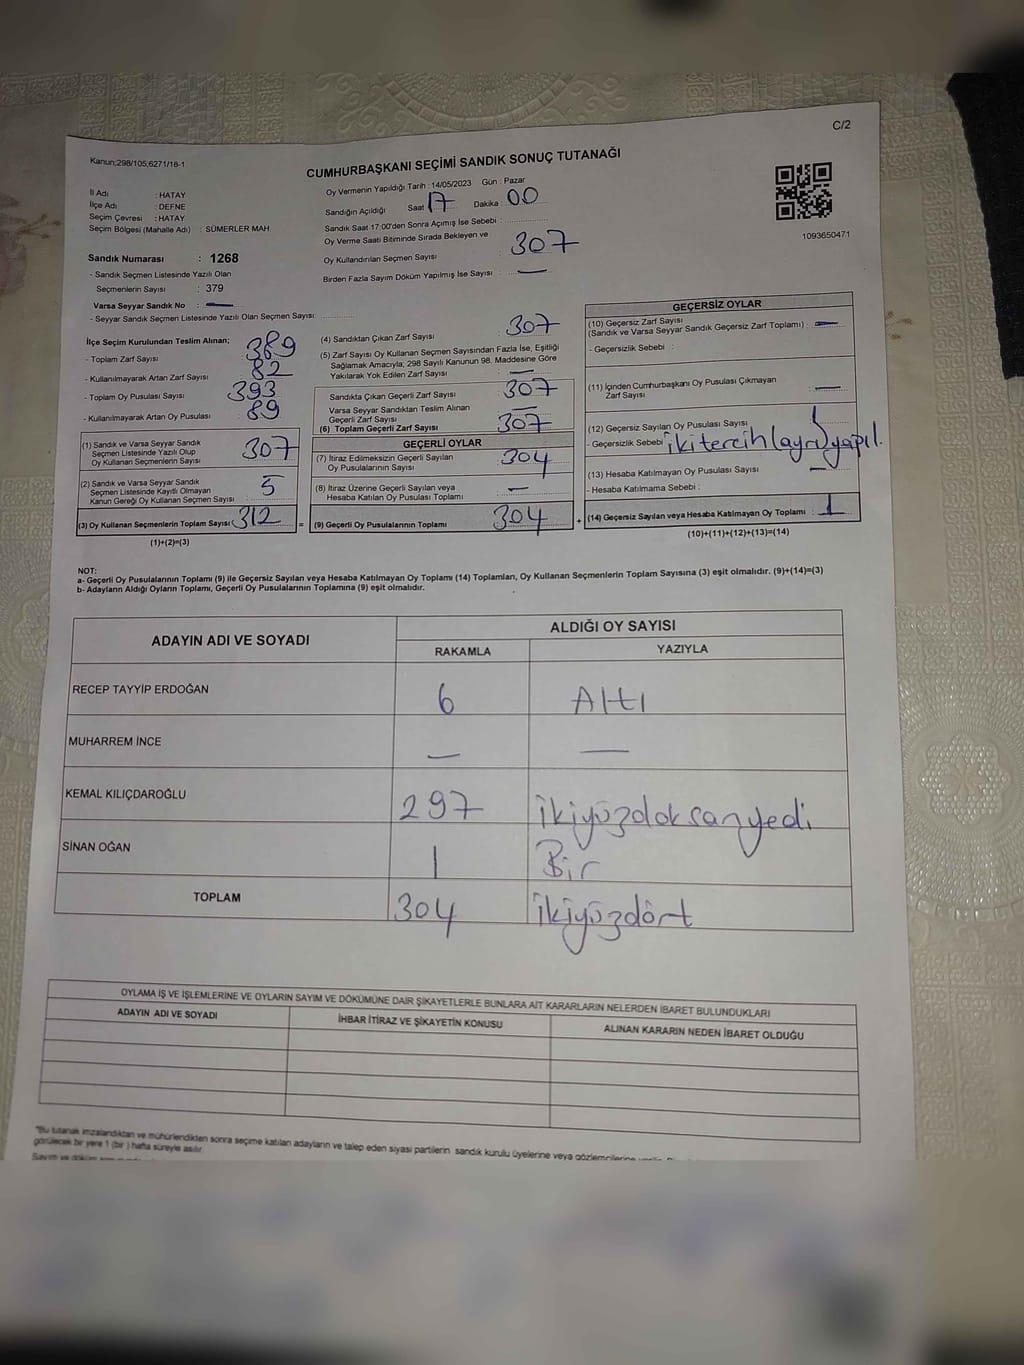 C/2
Kanun:298/105,6271/18-1
CUMHURBAŞKANI SEÇİMİ SANDIK SONUÇ TUTANAĞI
İl Adı : HATAY
İlçe Adı : DEFNE
Seçim Çevresi : HATAY
Seçim Bölgesi (Mahalle Adı) : SÜMERLER MAH.
Oy Vermenin Yapıldığı Tarih : 14/05/2023 Gün : Pazar
Sandığın Açıldığı Saat 17 Dakika : 00
Sandık Saat 17.00'den Sonra Açılmış İse Sebebi :
Oy Verme Saati Bitiminde Sırada Bekleyen ve
Oy Kullandırılan Seçmen Sayısı : 307
Birden Fazla Sayım Döküm Yapılmış İse Sayısı : —
1093650471
Sandık Numarası : 1268
- Sandık Seçmen Listesinde Yazılı Olan
Seçmenlerin Sayısı : 379
Varsa Seyyar Sandık No : —
- Seyyar Sandık Seçmen Listesinde Yazılı Olan Seçmen Sayısı:
İlçe Seçim Kurulundan Teslim Alınan;
- Toplam Zarf Sayısı 389
- Kullanılmayarak Artan Zarf Sayısı 82
- Toplam Oy Pusulası Sayısı 393
- Kullanılmayarak Artan Oy Pusulası 89
(1) Sandık ve Varsa Seyyar Sandık
Seçmen Listesinde Yazılı Olup
Oy Kullanan Seçmenlerin Sayısı 307
(2) Sandık ve Varsa Seyyar Sandık
Seçmen Listesinde Kayıtlı Olmayan
Kanun Gereği Oy Kullanan Seçmen Sayısı 5
(3) Oy Kullanan Seçmenlerin Toplam Sayısı 312
(1)+(2)=(3)
(4) Sandıktan Çıkan Zarf Sayısı 307
(5) Zarf Sayısı Oy Kullanan Seçmen Sayısından Fazla İse, Eşitliği
Sağlamak Amacıyla; 298 Sayılı Kanunun 98. Maddesine Göre
Yakılarak Yok Edilen Zarf Sayısı —
Sandıkta Çıkan Geçerli Zarf Sayısı 307
Varsa Seyyar Sandıktan Teslim Alınan
Geçerli Zarf Sayısı —
(6) Toplam Geçerli Zarf Sayısı 307
GEÇERLİ OYLAR
(7) İtiraz Edilmeksizin Geçerli Sayılan
Oy Pusulalarının Sayısı 304
(8) İtiraz Üzerine Geçerli Sayılan veya
Hesaba Katılan Oy Pusulası Toplamı —
= (9) Geçerli Oy Pusulalarının Toplamı 304 +
GEÇERSİZ OYLAR
(10) Geçersiz Zarf Sayısı
(Sandık ve Varsa Seyyar Sandık Geçersiz Zarf Toplamı) : —
- Geçersizlik Sebebi :
(11) İçinden Cumhurbaşkanı Oy Pusulası Çıkmayan
Zarf Sayısı —
(12) Geçersiz Sayılan Oy Pusulası Sayısı 1
- Geçersizlik Sebebi iki tercih
(13) Hesaba Katılmayan Oy Pusulası Sayısı —
- Hesaba Katılmama Sebebi :
(14) Geçersiz Sayılan veya Hesaba Katılmayan Oy Toplamı : 1
(10)+(11)+(12)+(13)=(14)
NOT:
a- Geçerli Oy Pusulalarının Toplamı (9) ile Geçersiz Sayılan veya Hesaba Katılmayan Oy Toplamı (14) Toplamları, Oy Kullanan Seçmenlerin Toplam Sayısına (3) eşit olmalıdır. (9)+(14)=(3)
b- Adayların Aldığı Oyların Toplamı, Geçerli Oy Pusulalarının Toplamına (9) eşit olmalıdır.
ADAYIN ADI VE SOYADI
ALDIĞI OY SAYISI
RAKAMLA YAZIYLA
RECEP TAYYİP ERDOĞAN 6 Altı
MUHARREM İNCE — —
KEMAL KILIÇDAROĞLU 297 ikiyüzdoksanyedi
SİNAN OĞAN 1 Bir
TOPLAM 304 ikiyüzdört
OYLAMA İŞ VE İŞLEMLERİNE VE OYLARIN SAYIM VE DÖKÜMÜNE DAİR ŞİKAYETLERLE BUNLARA AİT KARARLARIN NELERDEN İBARET BULUNDUKLARI
ADAYIN ADI VE SOYADI İHBAR İTİRAZ VE ŞİKAYETİN KONUSU ALINAN KARARIN NEDEN İBARET OLDUĞU
"Bu tutanak imzalandıktan ve mühürlendikten sonra seçime katılan adayların ve talep eden siyasi partilerin sandık kurulu üyelerine veya gözlemcilerine
görülecek bir yere 1 (bir) hafta süreyle asılır.